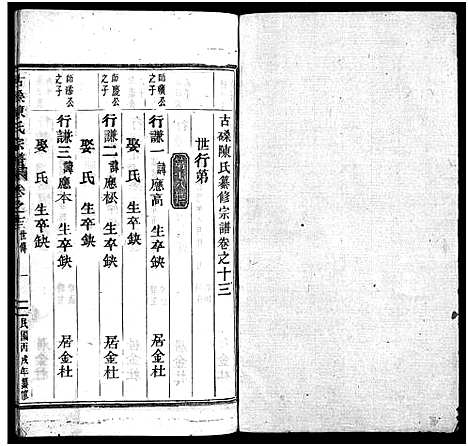 古磉陳氏纂修宗譜卷之十三
世行第
師積公之子
行謙一 諱應高 生卒缺 居金杜
娶 氏 生卒缺
師慶公之子
行謙二 諱應松 生卒缺 居金杜
娶 氏 生卒缺
師公之子
行謙三 諱應本 生卒缺 居金杜
娶 氏 生卒缺
古磉陳氏宗譜 卷之十三 世傳 一 民國丙戌年纂修